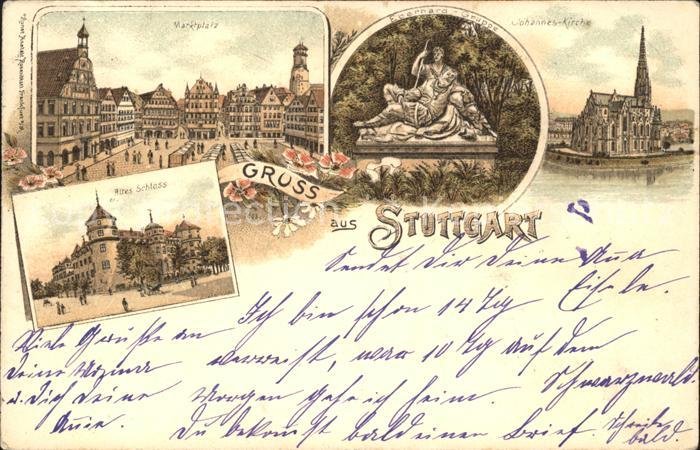 Marktplatz
Eberhard-Gruppe
Johannes-Kirche
Altes Schloss
GRUSS
aus STUTTGART
Sendet Dir Deine
Ich bin schon 14 Tg
verreist, war 10 Tg auf dem
Schwarzwald
Morgen gehe ich heim.
Du bekomst bald einen Brief. Schreibe
bald.
Viele Grüsse an
Deine Mama
u. Dich Deine